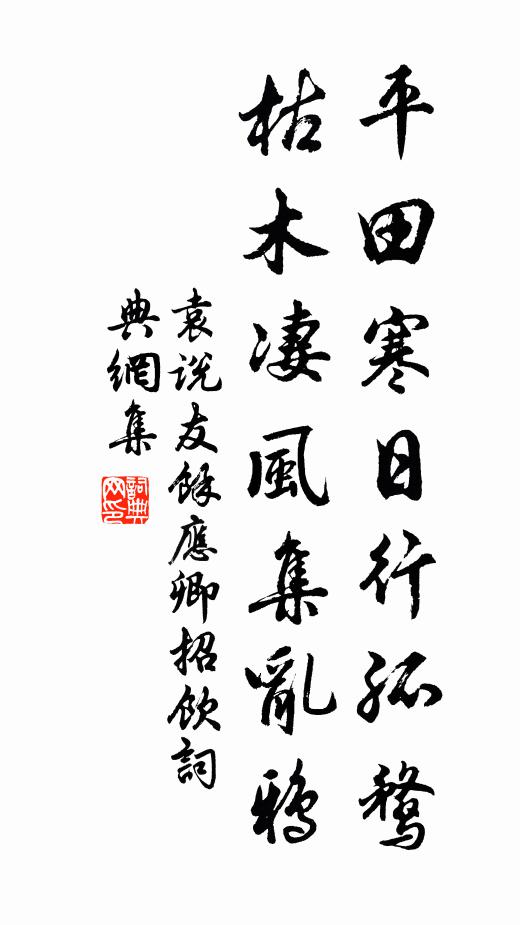 平田寒日行孤鶩
枯木凄風集亂鴉
袁說友餘應卿招飲詞
典網集
詞典网印